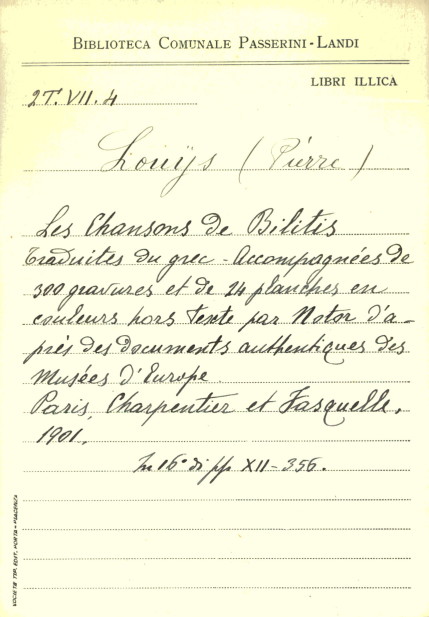 BIBLIOTECA COMUNALE PASSERINI-LANDI
LIBRI ILLICA
2T. VII. 4
Louÿs (Pierre)
Les Chansons de Bilitis
Traduites du grec - Accompagnées de
300 gravures et de 24 planches en
couleurs hors texte par Notor d'a-
près des documents authentiques des
Musées d'Europe.
Paris, Charpentier et Fasquelle,
1901.
In 16° di pp XII-356.
SOCIETÀ TIP. EDIT. PORTA - PIACENZA